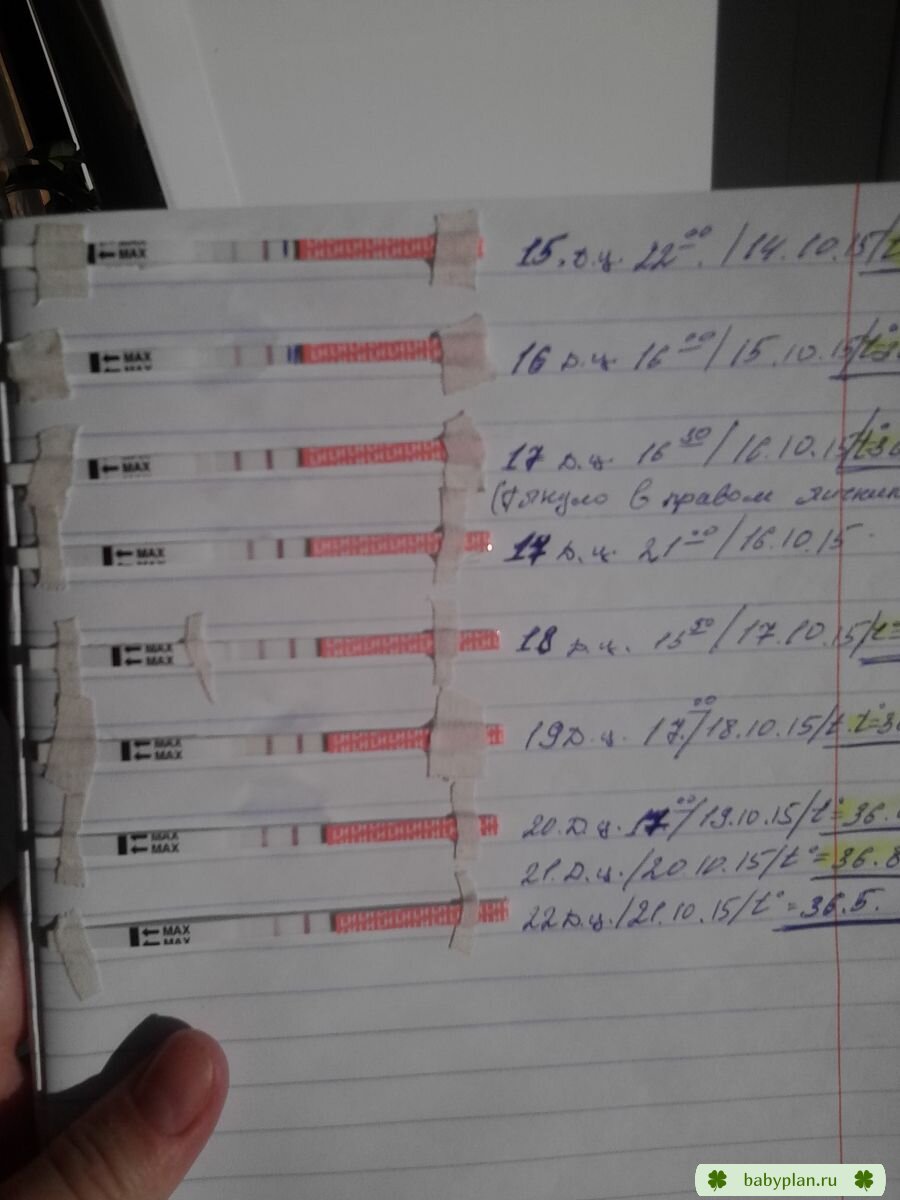 MAX
15. д.ц. 22 00. / 14.10.15 / t
MAX
MAX
16 д.ц. 16 00 / 15.10.15 / t°=3
MAX
17 д.ц. 16 30 / 16.10.15 / t°=36
(Тянуло в правом яичник
MAX
17 д.ц. 21 00 / 16.10.15
MAX
MAX
18 д.ц. / 17.10.15 / t=
MAX
MAX
19 д.ц. 17. 00 / 18.10.15 / t.t=36
MAX
MAX
20. д.ц. 17 00 / 19.10.15 / t°=36.
21. д.ц. / 20.10.15 / t°=36.8
MAX
MAX
22 д.ц. / 21.10.15 / t°=36.5.
babyplan.ru